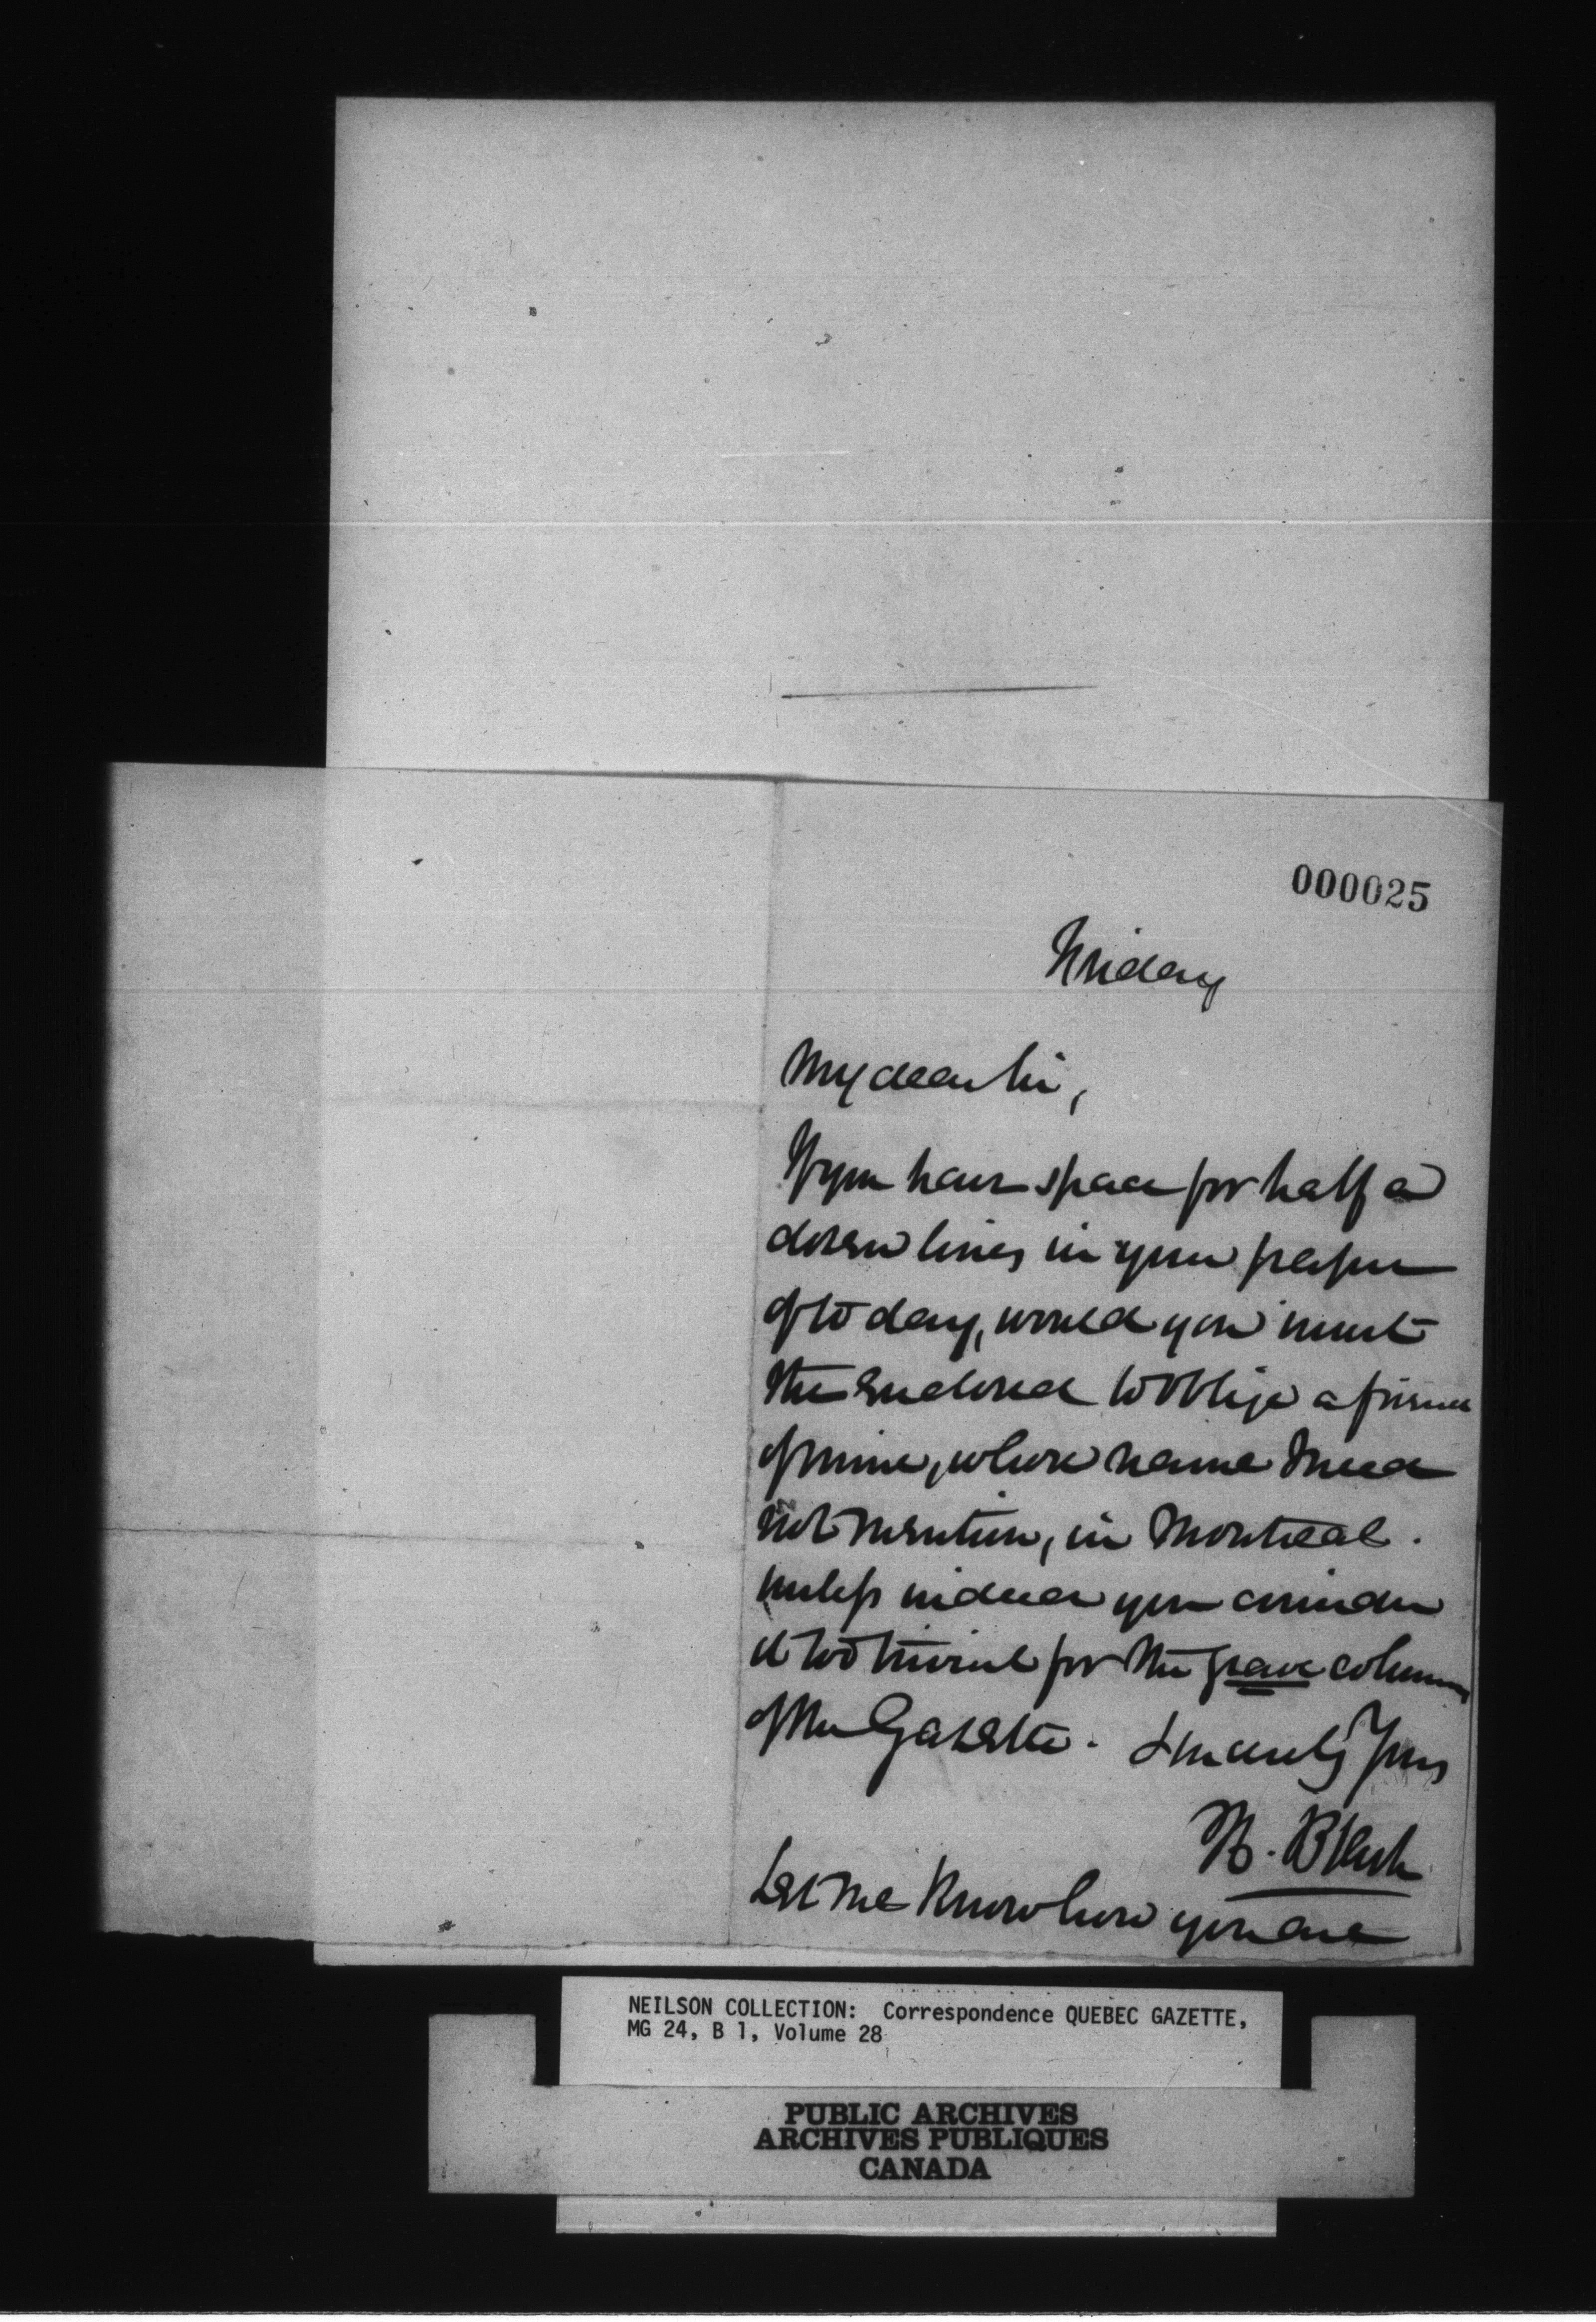 000025
Friday
My dear Sir,
If you have space for half a
dozen lines in your paper
of to day, would you insert
the enclosed to oblige a friend
of mine, whose name I need
not mention, in Montreal.
unless indeed you consider
it too trivial for the grave columns
of the Gazette. Sincerely Yours
H. Black
Let me know how you are
NEILSON COLLECTION: Correspondence QUEBEC GAZETTE,
MG 24, B 1, Volume 28
PUBLIC ARCHIVES
ARCHIVES PUBLIQUES
CANADA